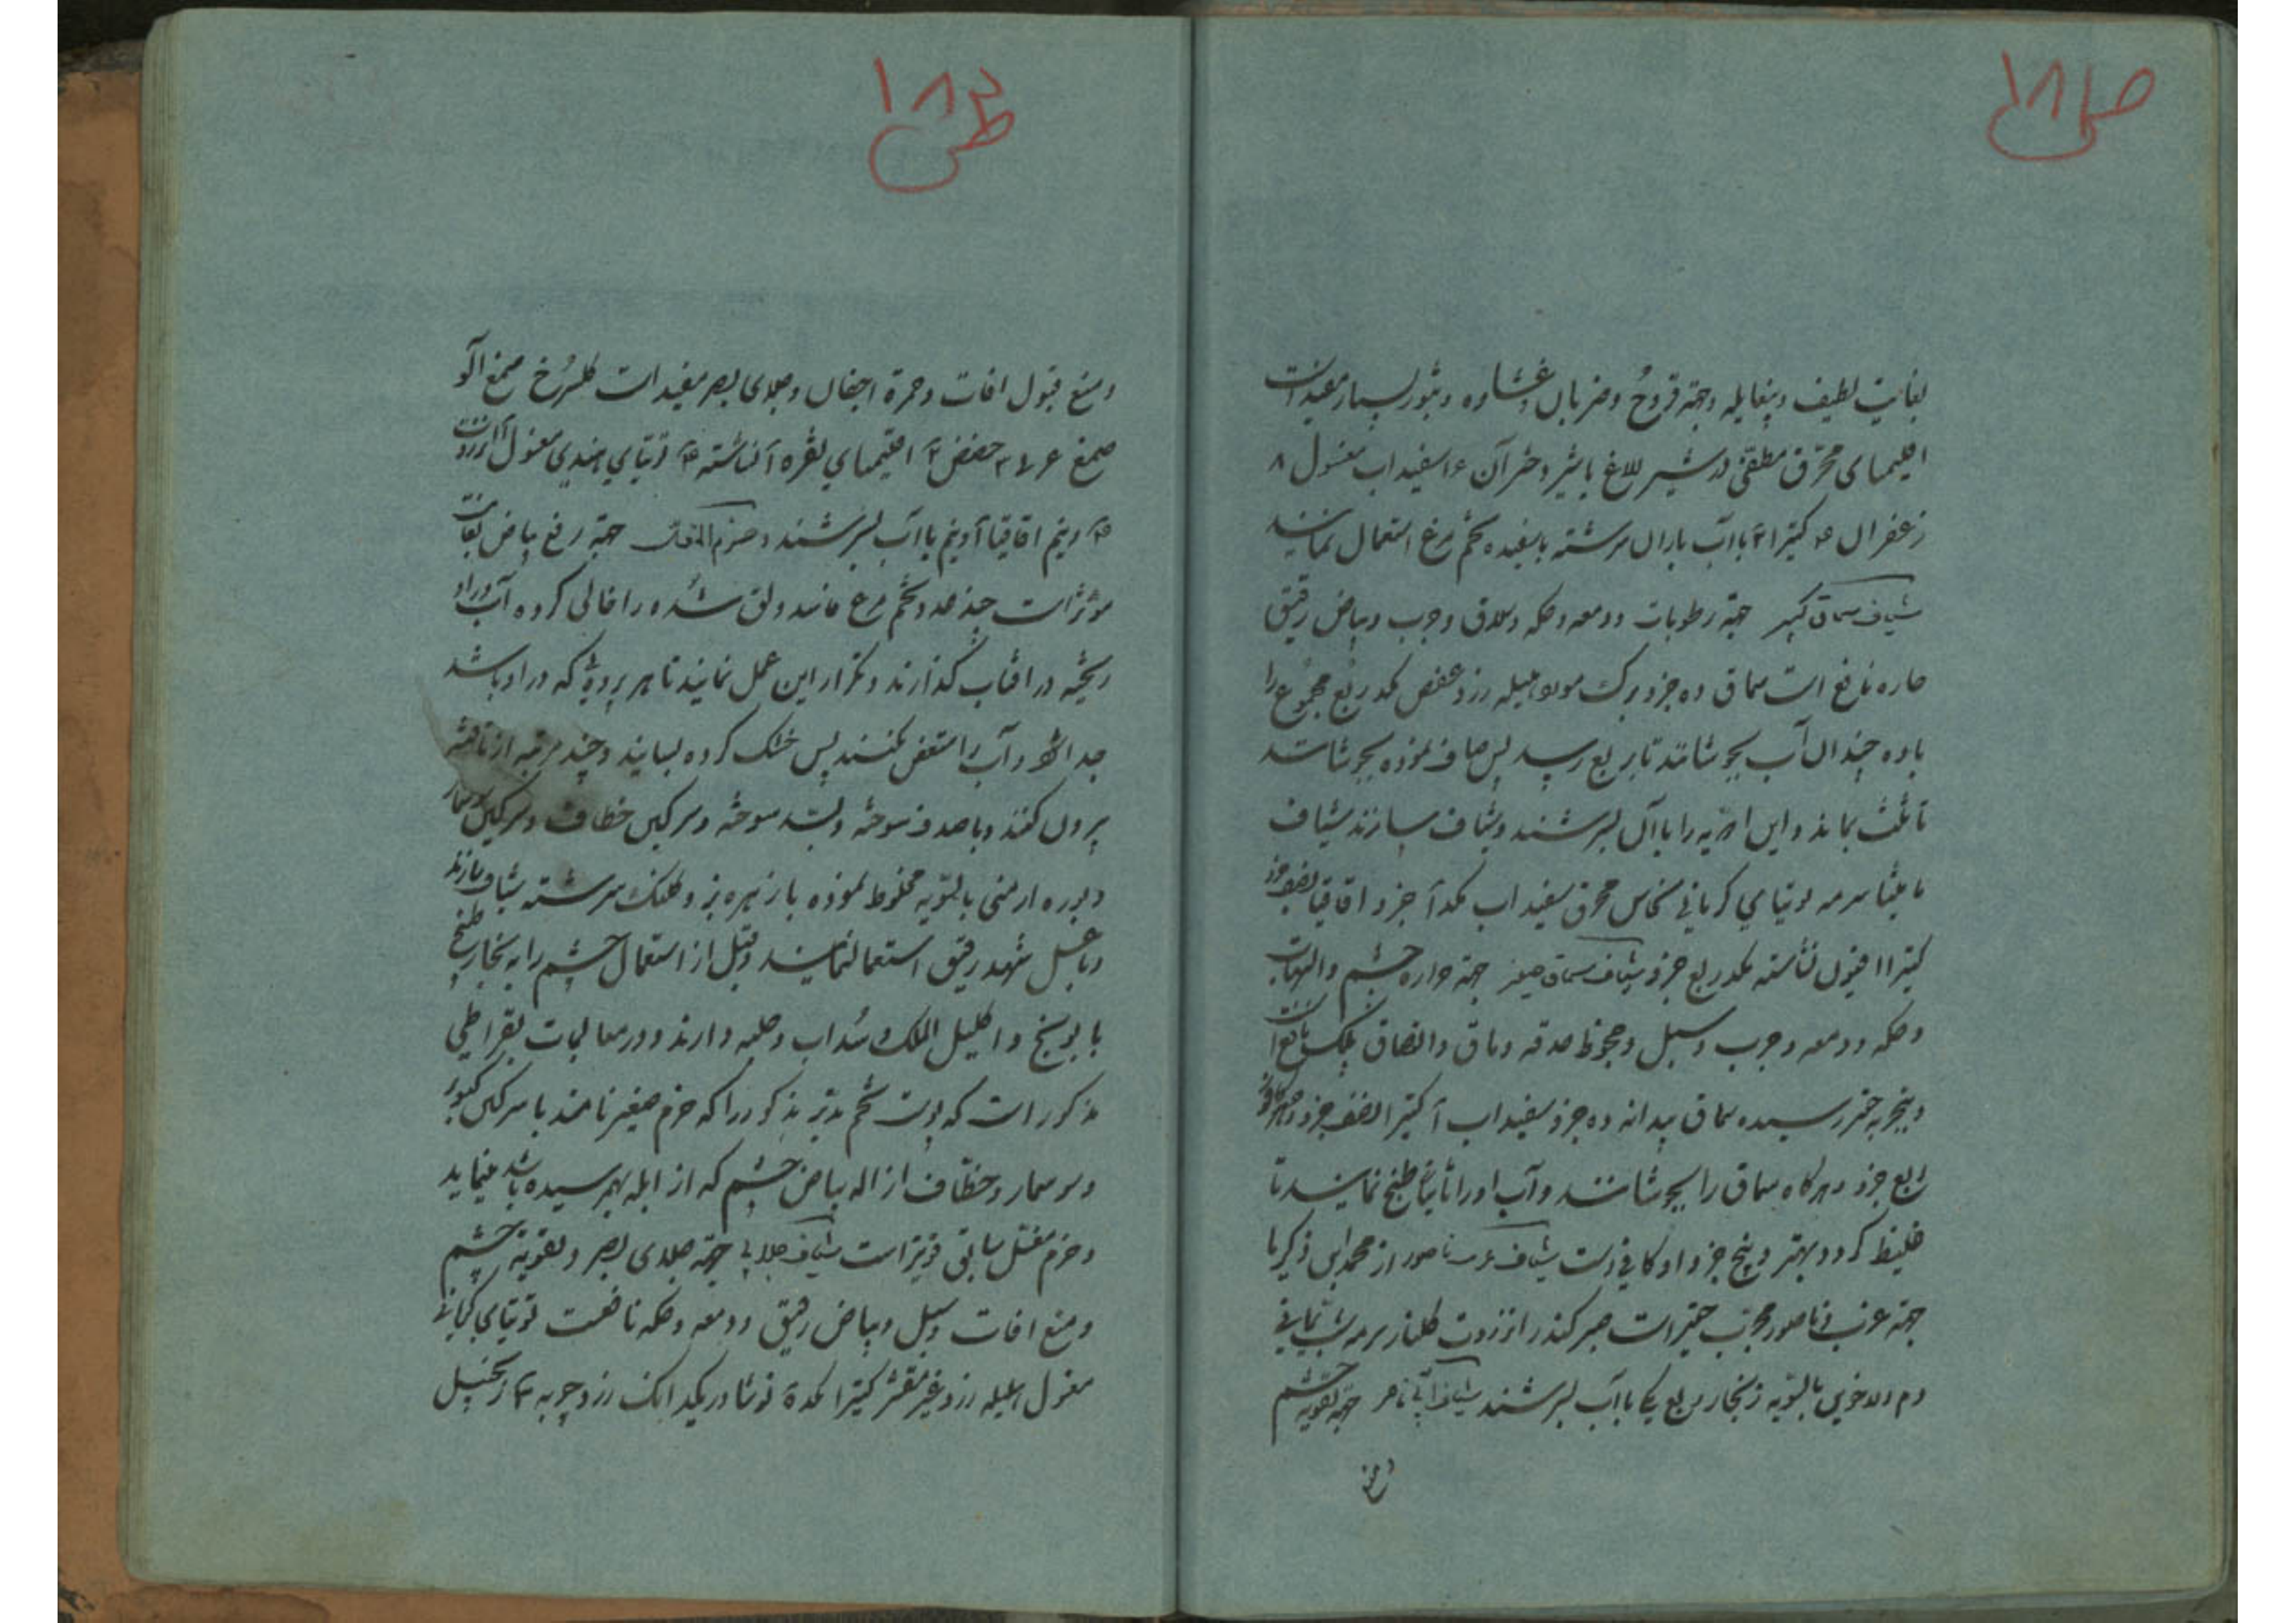 ص ١٨١
بغایت لطیف و بیغایله و جهة قروح و ضربان و غشاوه و بثور بسیار مفید است
اقلیمیای محرق مطفی در شیر للاغ یا شیر دختر آن ۱۶ سفیداب مغسول ۸
زعفران کتیرا ۴ با آب باران سرشته با سفیده تخم مرغ استعمال نمایند
شیاف سماق کبیر جهة رطوبات و دمعه و حکه و سلاق و جرب و بیاض رقیق
حاره نافع است سماق ده جزو برک مورد هلیله زرد عفص یکدر ربع مجموع را
با ده چندان آب بجوشانند تا بربع رسد پس صاف نموده بجوشانند
تا ثلث بماند و این ادویه را با آن بسرشند و شیاف سازند شیاف
مامیثا سرمه توتیای کرمانی نحاس محرق سفیداب یکدا جزو اقاقیا نصف جزو
کتیرا افیون نشاسته یکدر ربع جزو شیاف سماق صغیر جهة حراره چشم و التهاب
و حکه و دمعه و جرب و سبل و جحوظ حدقه و ماق و التصاق پلک نافع است
و بتجربه حقیر رسیده سماق بیدانه ده جزو سفیداب ا کتیرا نصف جزو
ربع جزو و هرکاه سماق را بجوشانند و آب او را ثانیا طبخ نمایند تا
غلیظ کردد بهتر و پنج جزو او کافیست شیاف غرب ناصور از محمدابن زکریا
جهة غرب و ناصور مجرب حقیر است صبر کندر انزروت کلنار سرمه شب یمانی
دم الاخوین بالسویه زنجار ربع یک با آب بسرشند شیاف جهة تقویه چشم
و منع
ص ١٨٢
و منع قبول افات و حمرة اجفان و جلای بصر مفید است کلسرخ صمغ آلو
صمغ حضض ۲ اقلیمیای نقره نشاسته توتیای هندی مغسول انزروت
و نیم اقاقیا ا و نیم با آب بسرشند جهة رفع بیاض بغایت
موثر است چند عدد تخم مرغ را خالی کرده آب در او
ریخته در افتاب کذارند و تکرار این عمل نمایند تا هر پرده که در او باشد
جدا شود و آب را متعفن نکنند پس خشک کرده بسایند و چند مرتبه از بافته
بیرون کنند و با صدف سوخته و بسد سوخته و سرکین خطاف و سرکین سوسمار
و بوره ارمنی بالسویه مخلوط نموده با زهره بز و کلنک سرشته شیاف سازند
و با عسل شهد رقیق استعمال نمایند و قبل از استعمال چشم را به بخار طبخ
بابونج و اکلیل الملک و سداب و حلبه دارند و در معالجات بقراطی
مذکور است که پوست تخم مدبر مذکور را که خرم صغیر نامند با سرکین کبوتر
و سوسمار و خطاف ازاله بیاض چشم که از ابله بهم رسیده باشد مینماید
و خرم مثل سابق و نیز است شیاف جلابی جهة جلای بصر و تقویة چشم
و منع افات و سبل و بیاض رقیق و دمعه و حکه نافعست توتیای کرمانی
مغسول هلیله زرد غیر مقشر کتیرا نوشادر یکدانک زردچوبه ۳ زنجبیل